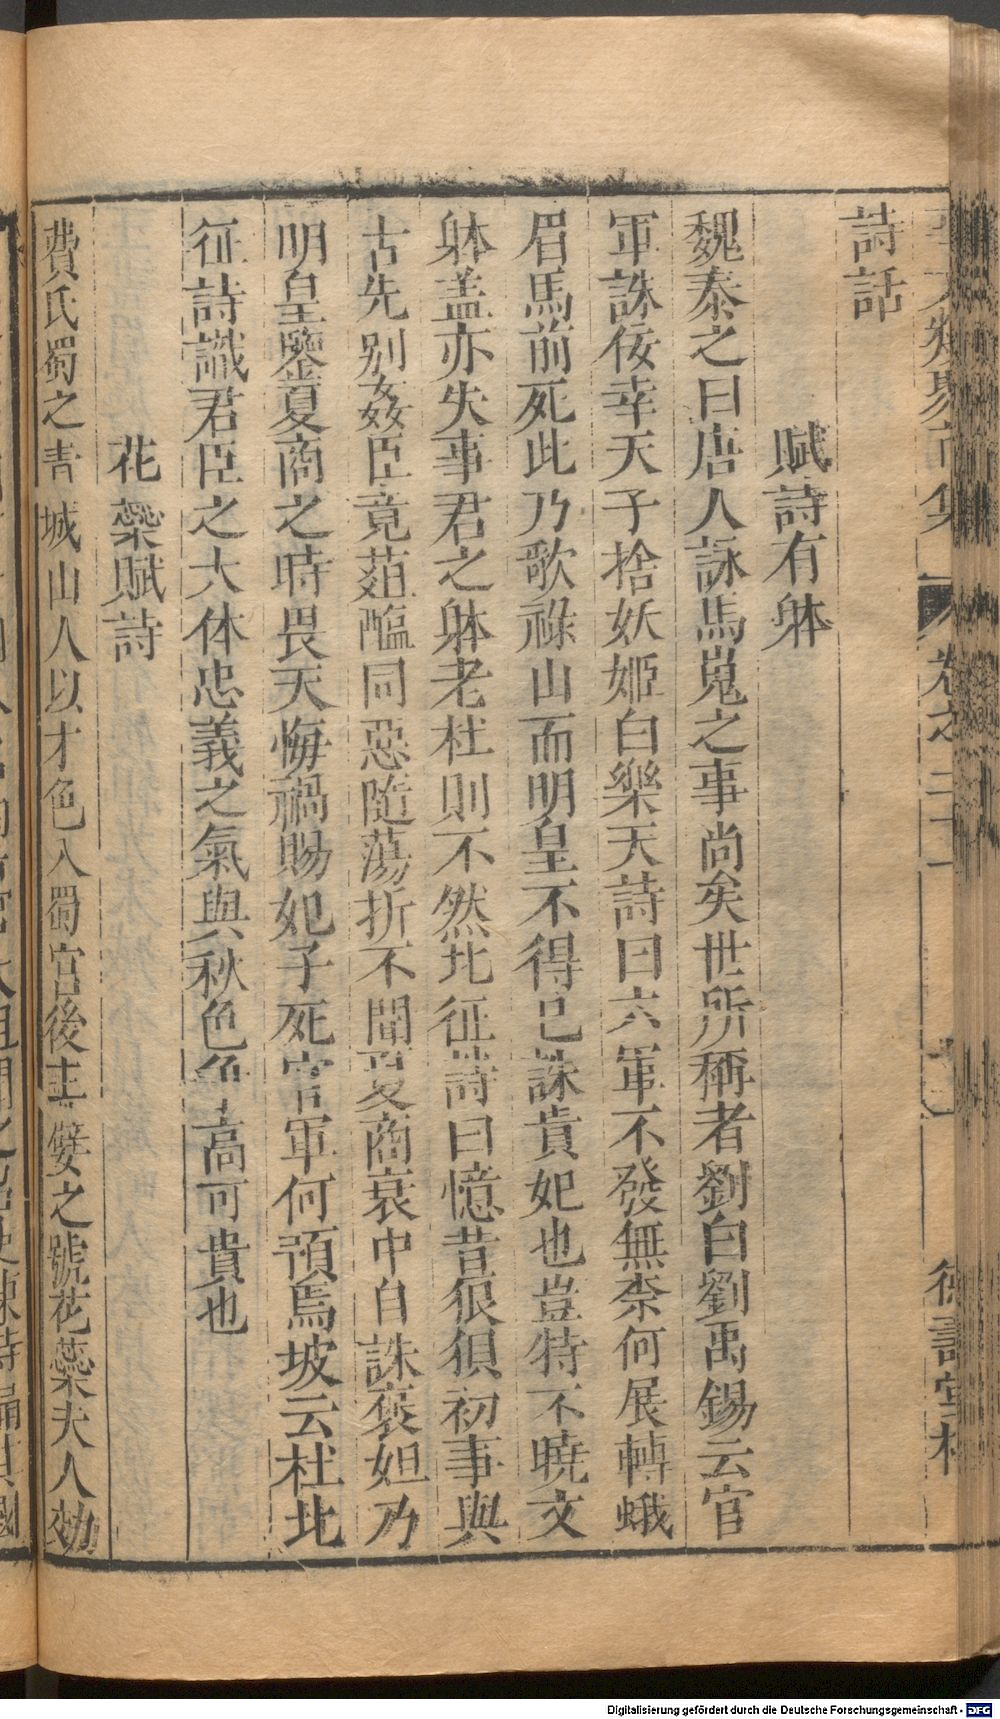 詩話
賦詩有躰
魏泰之曰唐人詠馬嵬之事尚矣世所稱者劉白劉禹錫云官
軍誅佞幸天子捨妖姬白樂天詩曰六軍不發無柰何展轉蛾
眉馬前死此乃歌祿山而明皇不得已誅貴妃也豈特不曉文
躰盖亦失事君之躰老杜則不然北征詩曰憶昔狼狽初事與
古先别姦臣竟葅醢同惡隨蕩折不聞夏商衰中自誅褒妲乃
明皇鑒夏商之時畏天悔禍賜妃子死官軍何預焉坡云杜北
征詩識君臣之大体忠義之氣與秋色争高可貴也
花蘂賦詩
費氏蜀之青城山人以才色入蜀宫後主嬖之號花蘂夫人効
Digitalisierung gefördert durch die Deutsche Forschungsgemeinschaft - DFG